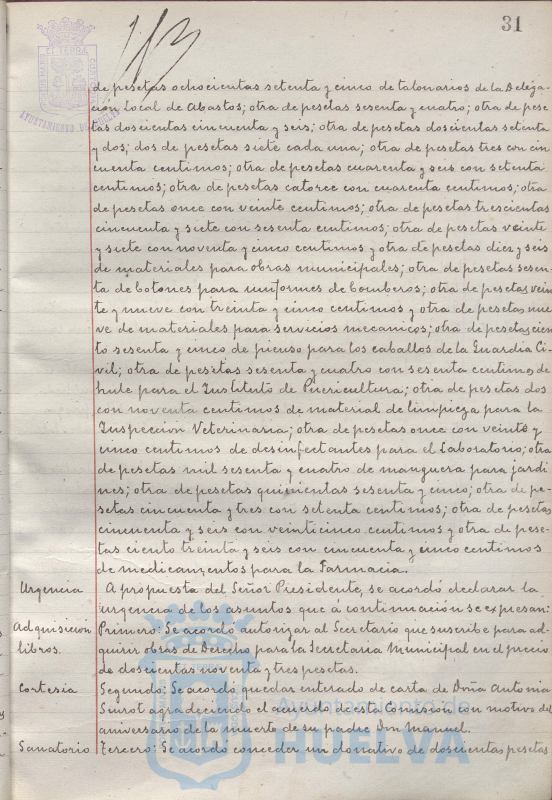 31
de pesetas ochocientas setenta y cinco de talonarios de la Delega-
ción Local de Abastos; otra de pesetas sesenta y cuatro; otra de pese
tas doscientas cincuenta y seis; otra de pesetas doscientas setenta
y dos; dos de pesetas siete cada una; otra de pesetas tres con cin
cuenta centimos; otra de pesetas cuarenta y seis con setenta
centimos; otra de pesetas catorce con cuarenta centimos; otra
de pesetas once con veinte centimos; otra de pesetas trescientas
cincuenta y siete con sesenta centimos; otra de pesetas veinte
y siete con noventa y cinco centimos y otra de pesetas diez y seis
de materiales para obras municipales; otra de pesetas sesen
ta de botones para uniformes de bomberos; otra de pesetas vein
te y nueve con treinta y cinco centimos y otra de pesetas nue
ve de materiales para servicios mecanicos; otra de pesetas cien
to sesenta y cinco de pienso para los caballos de la Guardia Ci-
vil; otra de pesetas sesenta y cuatro con sesenta centimos de
hule para el Instituto de Puericultura; otra de pesetas dos
con noventa centimos de material de limpieza para la
Inspeccion Veterinaria; otra de pesetas once con veinte y
cinco centimos de desinfectantes para el Laboratorio; otra
de pesetas mil sesenta y cuatro de manguera para jardi
nes; otra de pesetas quinientas sesenta y cinco; otra de pe-
setas cincuenta y tres con setenta centimos; otra de pesetas
cincuenta y seis con veinticinco centimos y otra de pese-
tas ciento treinta y seis con cincuenta y cinco centimos
de medicamentos para la Farmacia.
Urgencia A propuesta del Señor Presidente, se acordó declarar la
urgencia de los asuntos que á continuación se expresan:
Adquisicion Primero: Se acordó autorizar al Secretario que suscribe para ad-
libros. quirir obras de Derecho para la Secretaria Municipal en el precio
de doscientas noventa y tres pesetas.
Cortesia Segundo: Se acordó quedar enterado de carta de Doña Antonia
Siurot agradeciendo el acuerdo de esta Comision con motivo del
aniversario de la muerte de su padre Don Manuel.
Sanatorio Tercero: Se acordó conceder un donativo de doscientas pesetas
Ayuntamiento de
HUELVA